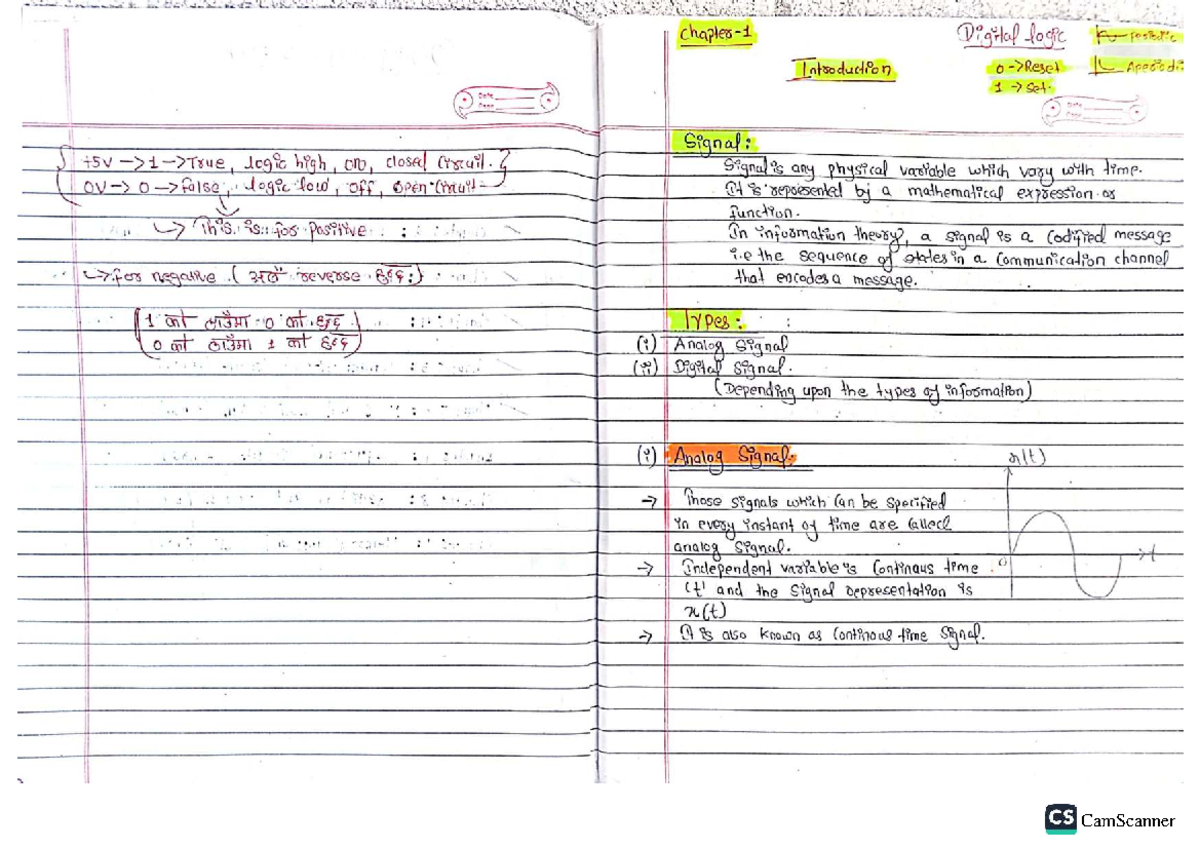 +5V → 1 → True, logic high, on, closed circuit.
0V → 0 → false, logic low, off, open circuit
↳ This is for positive
↳ for negative (अलं reverse हुन्छ:)
1 को ठाउँमा 0 को हुन्छ
0 को ठाउँमा 1 को हुन्छ
Date
Page
Chapter-1
Digital logic
Introduction
0 → Reset
1 → Set.
Periodic
Date
Page
Signal:
Signal is any physical variable which vary with time.
It is represented by a mathematical expression or
function.
In information theory, a signal is a codified message
i.e the sequence of states in a communication channel
that encodes a message.
Types:
(i) Analog Signal
(ii) Digital Signal.
(Depending upon the types of information)
(i) Analog Signal:
→ Those signals which can be specified
in every instant of time are called
analog signal.
→ Independent variable is continous time
't' and the signal representation is
x(t)
→ It is also known as continous time signal.
x(t)
0
t
CS CamScanner